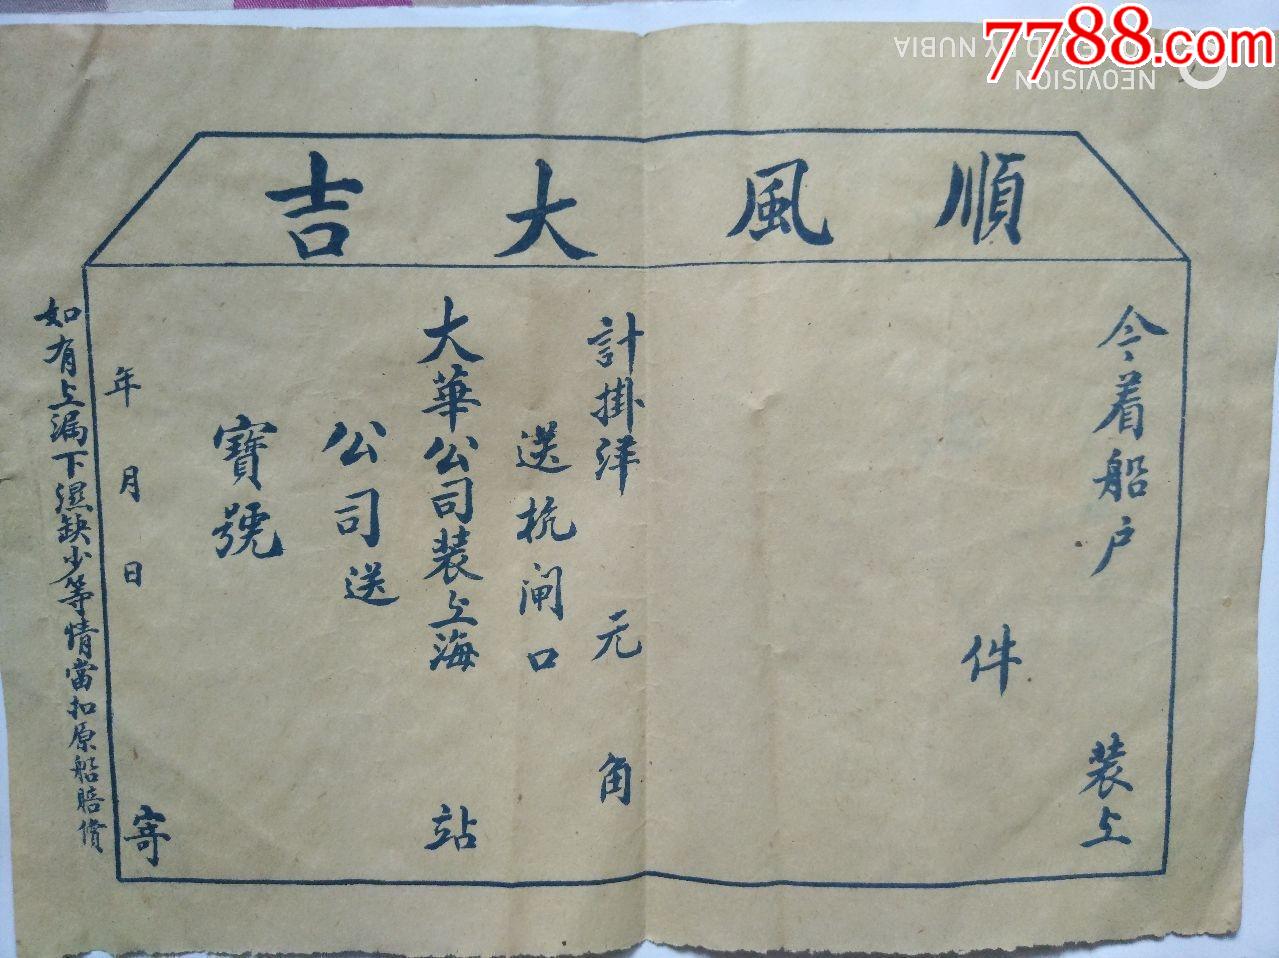 7788.com
NEOVISION
BY NUBIA
順風大吉
今着船户 装上
件
計掛洋 元 角
送杭闸口
大華公司装上海 站
公司送
寶號
年 月 日 寄
如有上漏下濕缺少等情當扣原船賠償